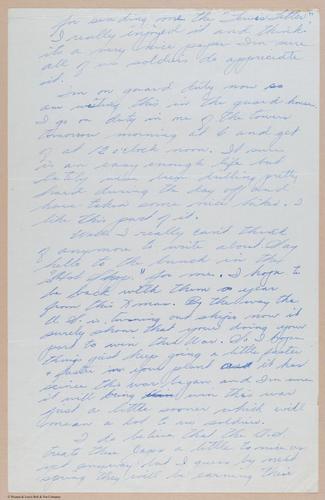 for sending me the "News Letter"
I really enjoyed it and think
its a very nice paper I'm sure
all of us soldiers do appreciate
it.
I'm on guard duty now so
am writing this in the guard house
I go on duty in one of the towers
tomorrow morning at 6 and get
of at 12 o'clock noon. It sure
is an easy enough life but
lately been drilling pretty
hard during the day off and
have taken some nice hikes. I
like this part of it.
Well I really can't think
of anymore to write about. Say
hello to the bunch in the
Shop." for me. I hope to
be back with them a year
from this Xmas. By the way the
U.S. is turning out ships now it
surely shows that your doing your
part to win the War. So I hope
things just keep going a little faster
+ faster in your plant as it has
since this war began and I'm sure
it will bring win this war
just a little sooner which will
mean a lot to us soldiers.
I do believe that the
treats these Japs a little to nice
but I guess by next
spring they will be